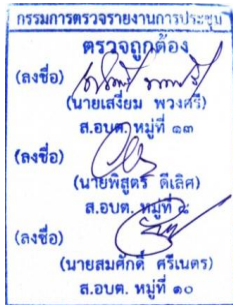 กรรมการตรวจรายงานการประชุม
ตรวจถูกต้อง
(ลงชื่อ)
(นายเสงี่ยม พวงศรี)
ส.อบต. หมู่ที่ ๑๓
(ลงชื่อ)
(นายพิสูตร ดีเลิศ)
ส.อบต. หมู่ที่ ๕
(ลงชื่อ)
(นายสมศักดิ์ ศรีเนตร)
ส.อบต. หมู่ที่ ๑๐